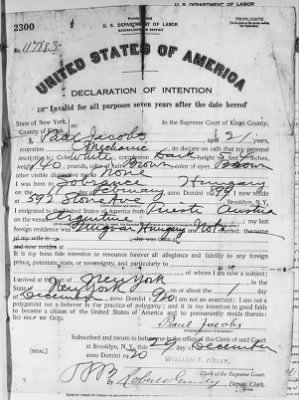 U. S. DEPARTMENT OF LABOR
TRIPLICATE
2300
U. S. DEPARTMENT OF LABOR
NATURALIZATION SERVICE
No. 117883
UNITED STATES OF AMERICA
DECLARATION OF INTENTION
Invalid for all purposes seven years after the date hereof
State of New York,
County of Kings,
In the Supreme Court of Kings County,
Jacobs aged 21 years,
occupation Mechanic, do declare on oath that my personal
description is: Color White, complexion Dark, height 5 feet inches,
weight 140 pounds, color of hair Brown, color of eyes Brown
other visible distinctive marks None
I was born in Hungary
on the day of February, anno Domini 1899; I now reside
at 592 Stone Ave, Brooklyn, N. Y.
I emigrated to the United States of America from Trieste Austria
on the vessel Argentine; my last
foreign residence was Hungary; I am Not married; the name
of my wife is; she was born at
and now resides at
It is my bona fide intention to renounce forever all allegiance and fidelity to any foreign
prince, potentate, state, or sovereignty, and particularly to
, of whom I am now a subject;
I arrived at the port of New York, in the
State of New York, on or about the day
of December, anno Domini 1920; I am not an anarchist; I am not a
polygamist nor a believer in the practice of polygamy; and it is my intention in good faith
to become a citizen of the United States of America and to permanently reside therein:
SO HELP ME GOD.
Jacobs
Subscribed and sworn to before me in the office of the Clerk of said Court
at Brooklyn, N. Y., this 29 day of December
anno Domini 1920
[SEAL]
WILLIAM E. KELLY
Clerk
By Deputy Clerk.